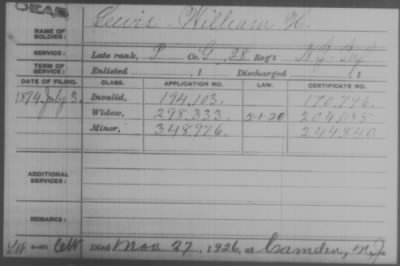 DEAD
NAME OF SOLDIER: Lewis William H.
SERVICE: Late rank, P Co. G 28 Reg't N.J. Inf
TERM OF SERVICE: Enlisted , 1 Discharged , 1
DATE OF FILING. CLASS. APPLICATION NO. LAW. CERTIFICATE NO.
1874 July 3. Invalid, 194,103.
Widow, 298,333. 5-1-20 204,035
Minor, 348,776. 244,840
ADDITIONAL SERVICES:
REMARKS:
Died Nov 27, 1926, at Camden, N.J.